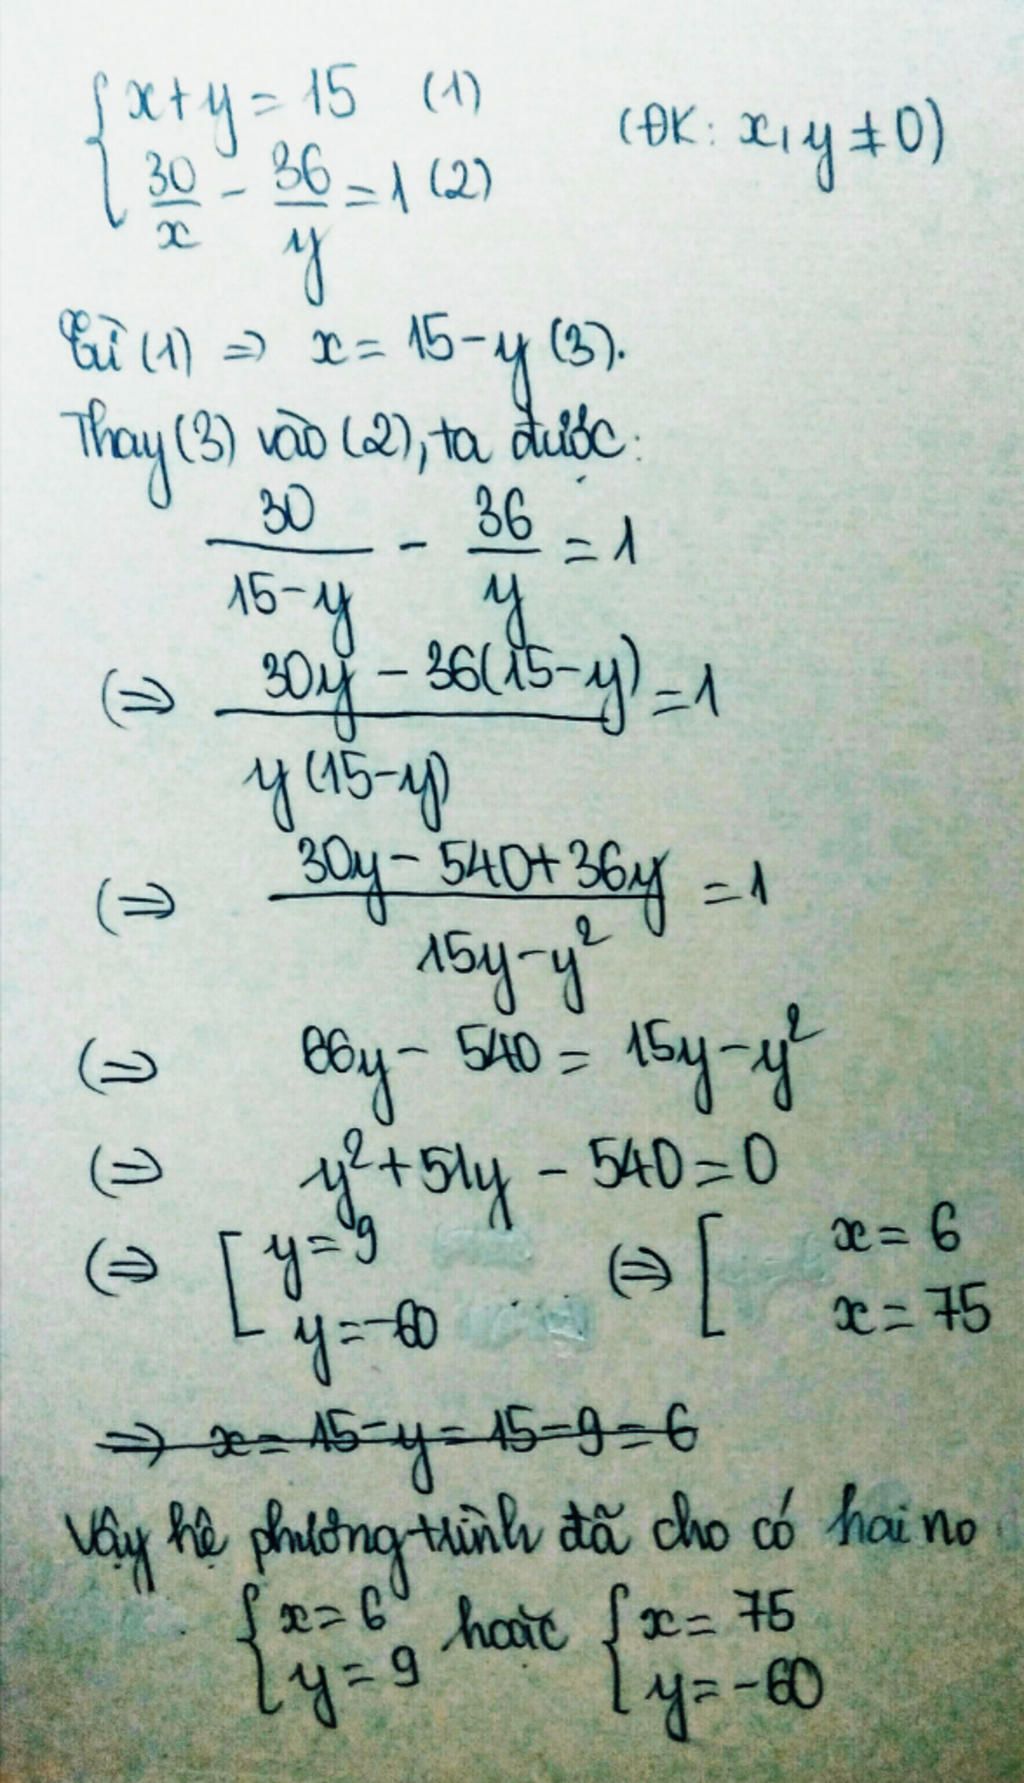 x+y = 15 (1)
30/x - 36/y = 1 (2) (ĐK: x, y ≠ 0)
Từ (1) => x = 15-y (3).
Thay (3) vào (2), ta được:
30/(15-y) - 36/y = 1
(=> (30y - 36(15-y))/(y(15-y)) = 1
(=> (30y - 540+36y)/(15y-y²) = 1
(=> 66y - 540 = 15y-y²
(=> y²+51y - 540 = 0
(=> [ y = 9 (=> [ x = 6
y = -60 x = 75
=> x = 15-y = 15-9 = 6
Vậy hệ phương trình đã cho có hai no
{ x = 6 hoặc { x = 75
y = 9 y = -60